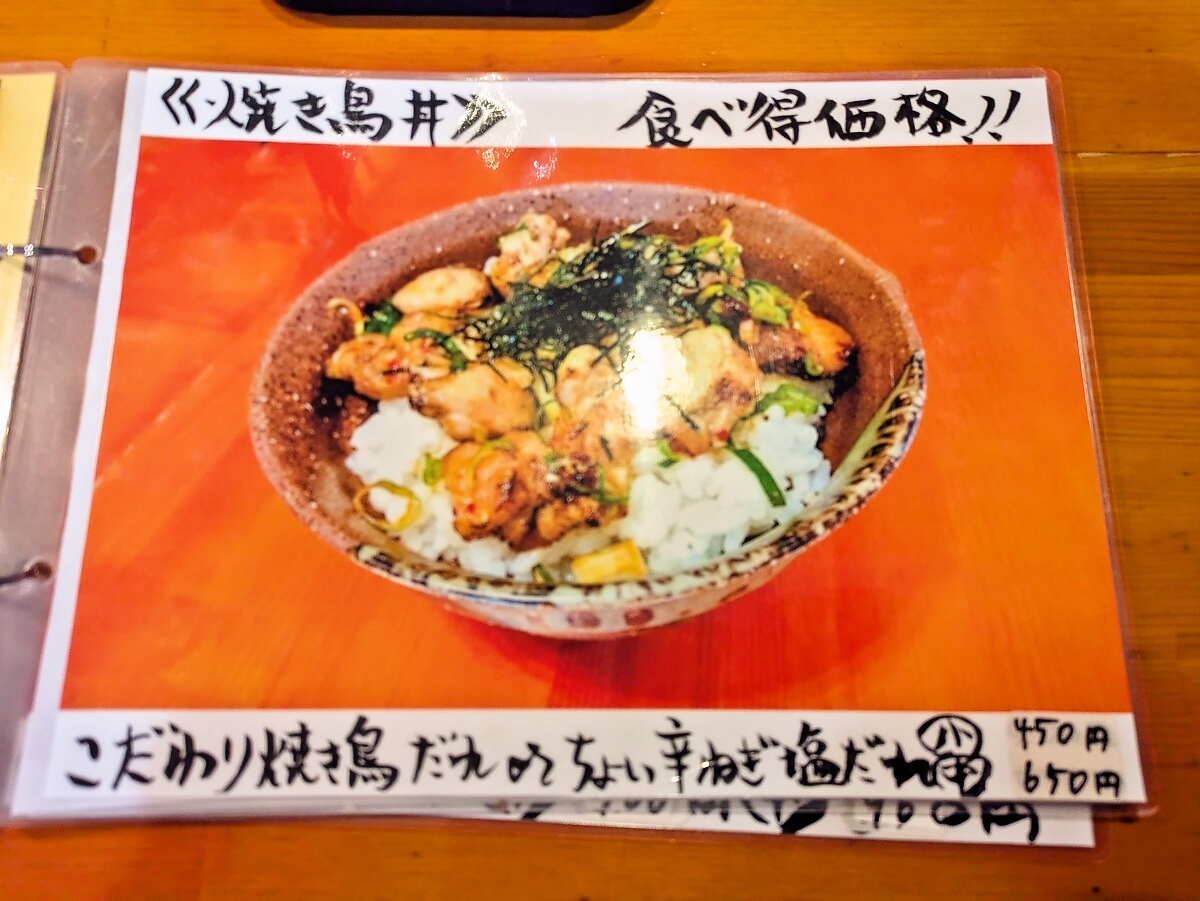 《焼き鳥丼》 食べ得価格!!
こだわり焼き鳥だれ or ちょい辛ねぎ塩だれ 小 450円
650円